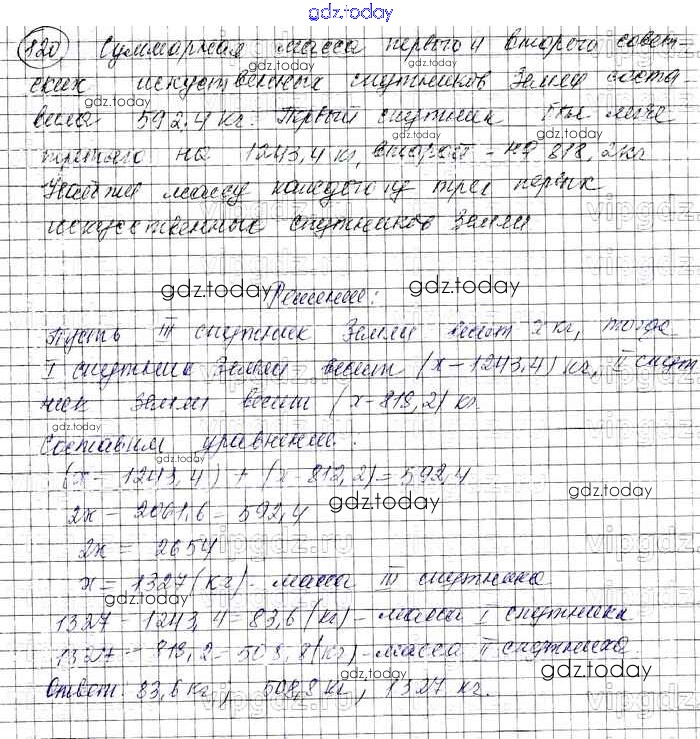 gdz.today
120 Суммарная масса первого и второго совет-
ских искуственных спутников Земли соста
вила 592.4 кг. Первый спутник был легче
третьего на 1243,4 кг, второй - на 818,2кг
Найдите массу каждого из трех первых
искусственных спутников Земли
Решение:
Пусть III спутник Земли весит x кг, тогда
I спутник Земли весит (x-1243,4) кг, II спут
ник Земли весит (x-818,2) кг.
Составим уравнение:
(x-1243,4) + (x-812,2)=592,4
2x - 2061,6 = 592,4
2x = 2654
x = 1327(кг) - масса III спутника
1327 - 1243,4 = 83,6(кг) - масса I спутника
1327 - 818,2 = 508,8(кг) - масса II спутника.
Ответ: 83,6кг; 508,8 кг, 1327 кг.